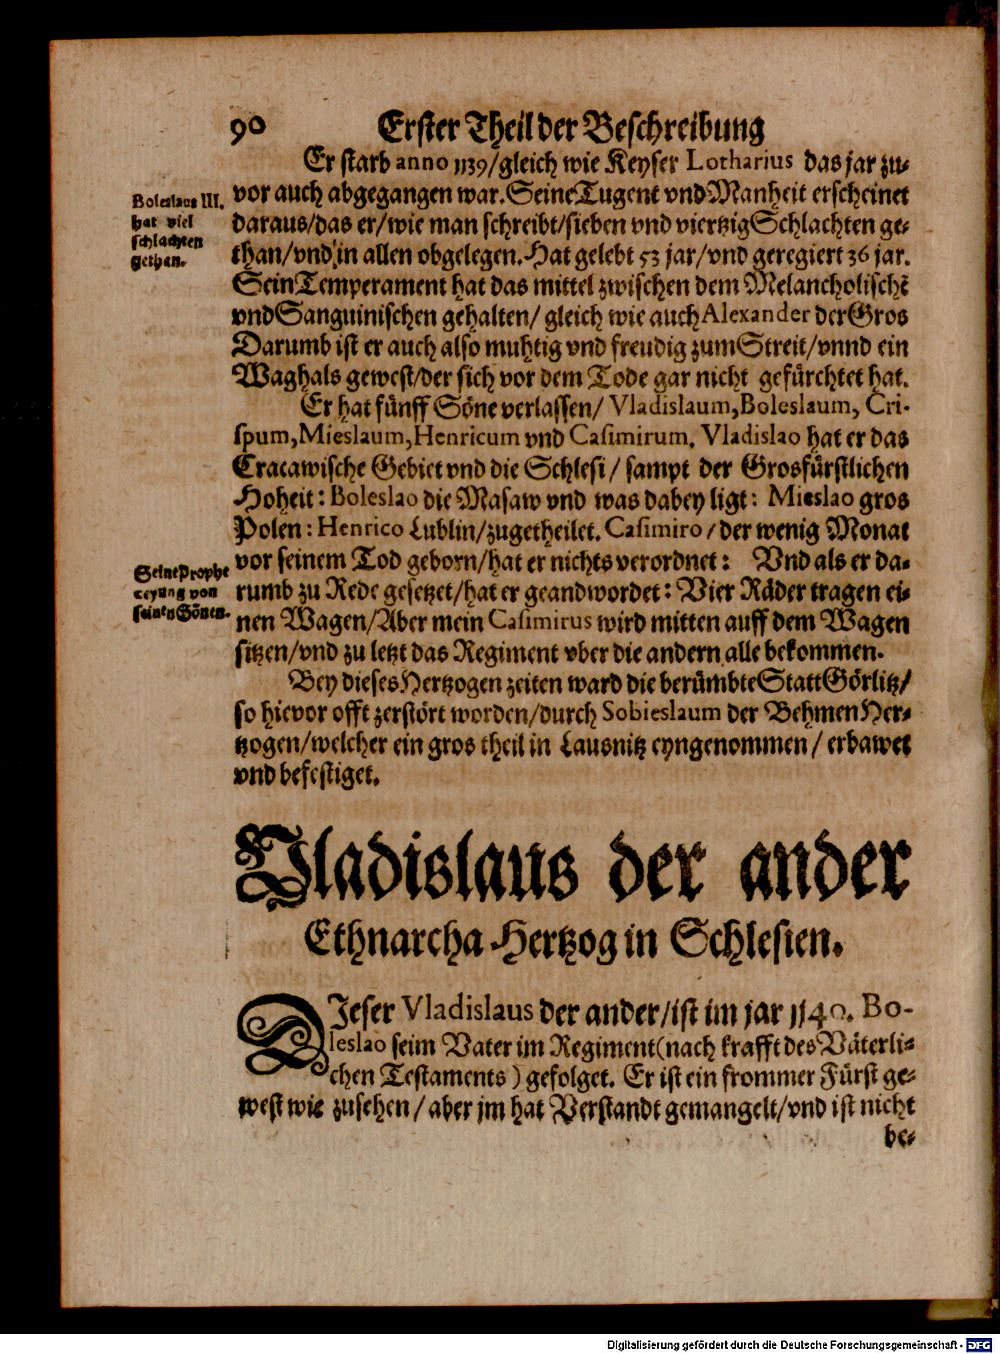 90 Erster Theil der Beschreibung
Er starb anno 1139/gleich wie Keyser Lotharius das jar zu-
vor auch abgegangen war. Seine Tugent vnd Manheit erscheinet
daraus/das er/wie man schreibt/sieben vnd viertzig Schlachten ge-
than/vnd in allen obgelegen. Hat gelebt 53 jar/vnd geregiert 36 jar.
Sein Temperament hat das mittel zwischen dem Melancholischē
vnd Sanguinischen gehalten/ gleich wie auch Alexander der Gros
Darumb ist er auch also muhtig vnd freudig zum Streit/vnnd ein
Waghals gewest/der sich vor dem Tode gar nicht gefürchtet hat.
Boleslaus III.
hat viel
schlachten
gethan.
Er hat fünff Söne verlassen/ Vladislaum, Boleslaum, Cri-
spum, Mieslaum, Henricum vnd Casimirum. Vladislao hat er das
Cracawische Gebiet vnd die Schlesi/ sampt der Grosfürstlichen
Hoheit: Boleslao die Masaw vnd was dabey ligt: Mieslao gros
Polen: Henrico Lublin/zugetheilet. Casimiro/der wenig Monat
vor seinem Tod geborn/hat er nichts verordnet: Vnd als er da-
rumb zu Rede gesetzet/hat er geandwordet: Vier Räder tragen ei-
nen Wagen/Aber mein Casimirus wird mitten auff dem Wagen
sitzen/vnd zu letzt das Regiment vber die andern alle bekommen.
Seine Prophe
ceyung von
seinen Sönen.
Bey dieses Hertzogen zeiten ward die berümbte Statt Görlitz/
so hievor offt zerstört worden/durch Sobieslaum der Behmen Her-
tzogen/welcher ein gros theil in Lausnitz eyngenommen/ erbawet
vnd befestiget.
Vladislaus der ander
Ethnarcha Hertzog in Schlesien.
DIeser Vladislaus der ander/ist im jar 1140. Bo-
leslao seim Vater im Regiment (nach krafft des Väterli-
chen Testaments) gefolget. Er ist ein frommer Fürst ge-
west wie zusehen/aber jm hat Verstandt gemangelt/vnd ist nicht
be-
Digitalisierung gefördert durch die Deutsche Forschungsgemeinschaft - DFG